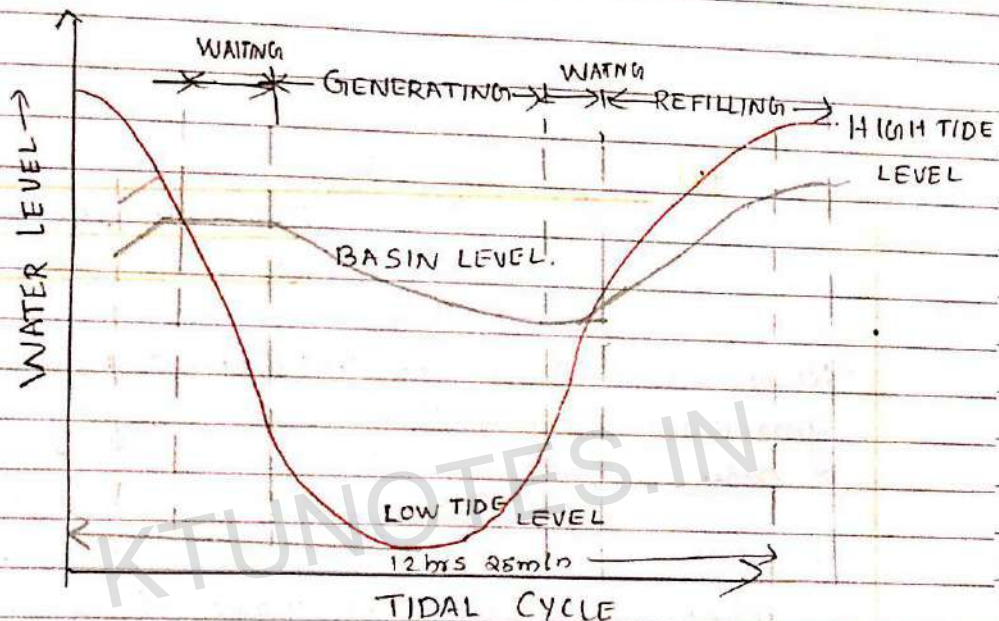 WAITNG
GENERATING
WATNG
REFILLING
HIGH TIDE
LEVEL
WATER LEVEL
BASIN LEVEL.
LOW TIDE LEVEL
12 hrs 25min
TIDAL CYCLE
KTUNOTES.IN